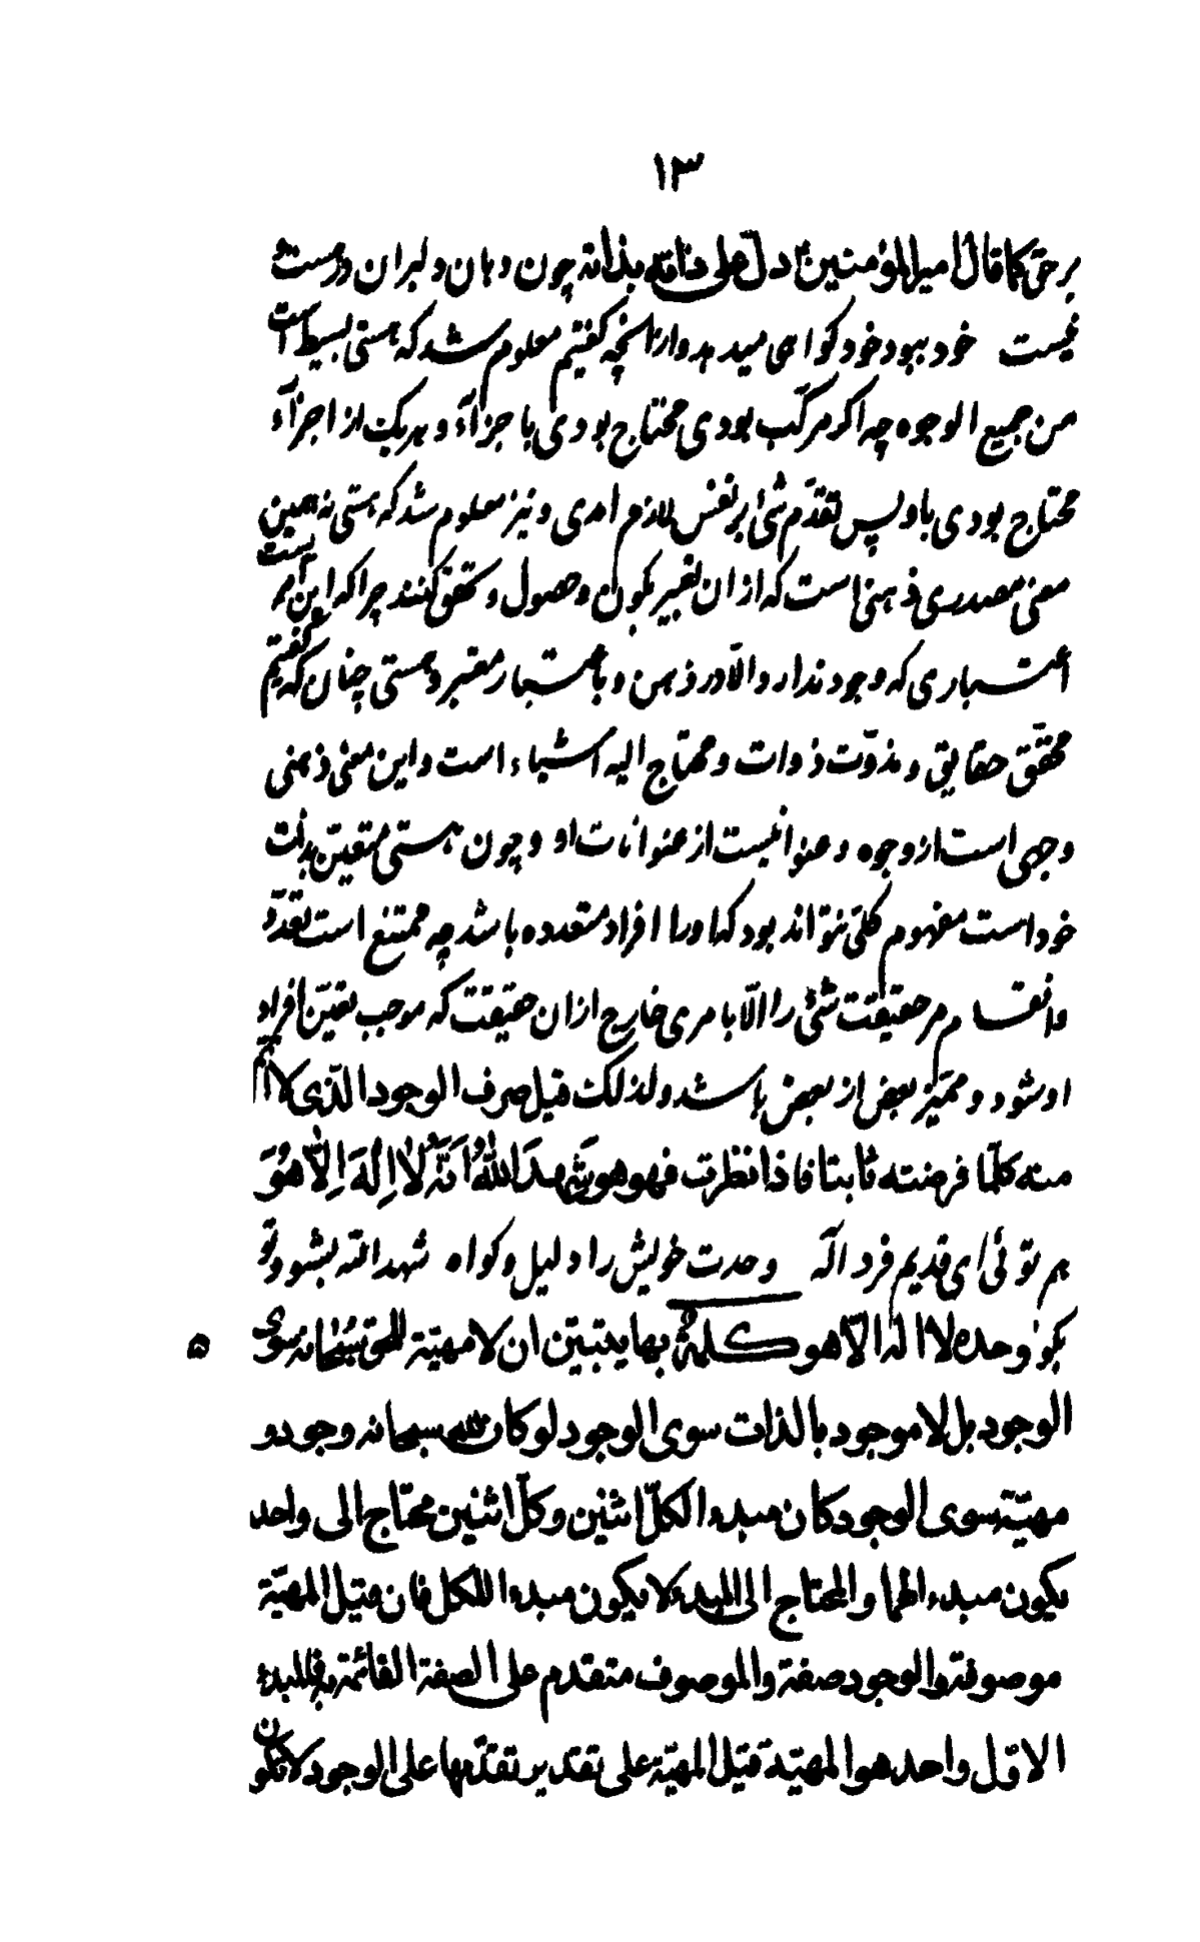 ۱۳
بر حق کما قال امیر المؤمنین ع دلّ علی ذاته بذاته چون دهان دلبران در هست
نیست خود ببود خود کواهی میدهد و از آنچه کفتیم معلوم شد که هستی بسیط است
من جمیع الوجوه چه اکر مرکّب بودی محتاج بودی باجزآء و هر یک از اجزآء
محتاج بودی باو پس تقدّم شئ بر نفس لازم امدی و نیز معلوم شد که هستی نه همین
معنی مصدری ذهنی است که از ان تعبیر بکون و حصول و تحقق کنند چرا که این امریست
اعتباری که وجود ندارد الّا در ذهن و باعتبار معتبر و هستی چنان که کفتیم
محقّق حقایق و مذوّت ذوات و محتاج الیه اشیاء است و این معنی ذهنی
وجهی است از وجوه و عنوانیست از عنوانات او و چون هستی متعیّن بذات
خود است مفهوم کلّی نتواند بود که او را افراد متعدده باشد چه ممتنع است تعدّد
و انقسام مر حقیقت شئ را الّا بامری خارج از ان حقیقت که موجب تعیّن افراد
او شود و ممیّز بعض از بعض باشد و لذلک قیل صرف الوجود الّذی لا اتمّ
منه کلّما فرضته ثابتا فاذا نظرت فهو هو شَهِدَ اللّٰهُ اَنَّهُ لٰا اِلٰهَ اِلّٰا هُوَ
هم توئی ای قدیم فرد اله وحدت خویش را دلیل و کواه شهد الله بشنو و تو
بکو وحده لا اله الّا هو کلمةٌ بها یتبیّن ان لا مهیّة للحق سُبْحٰانه سوی
۵
الوجود بل لا موجود بالذات سوی الوجود لو کان لله سبحانه وجود و
مهیّة سوی الوجود کان مبدء الکلّ اثنین و کلّ اثنین محتاج الی واحد
یکون مبدء لهما و المحتاج الی المبدء لا یکون مبدء اللکل فان قیل المهیّة
موصوفة و الوجود صفة و الموصوف متقدم علی الصفة القائمة به فالمبدء
الاوّل واحد هو المهیّة قیل المهیّة علی تقدیر تقدّمها علی الوجود لا تکون